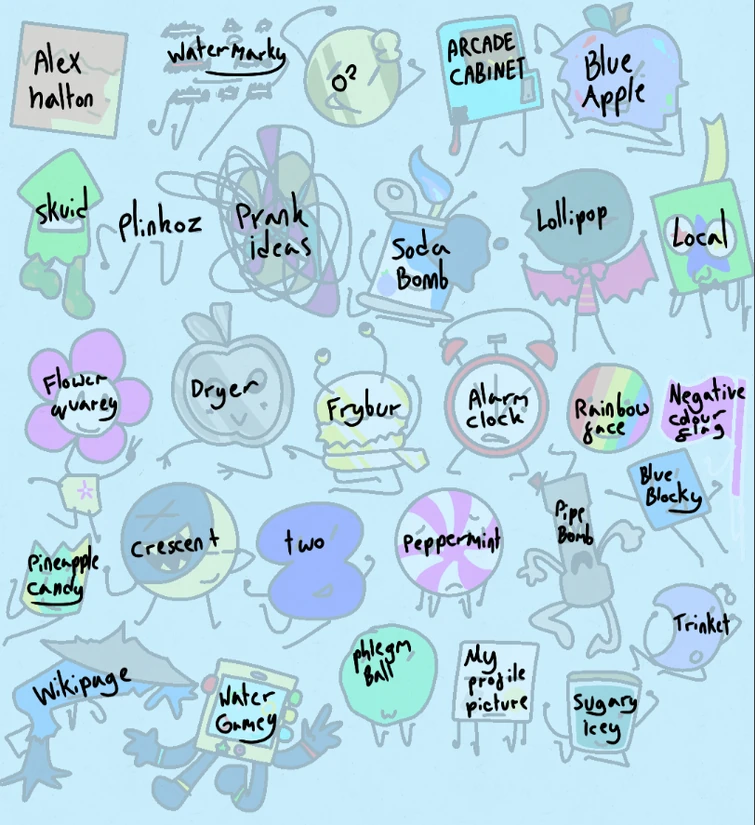 Alex
halton
Watermarky
O2
ARCADE
CABINET
Blue
Apple
Skuid
Plinkoz
Prank
ideas
Soda
Bomb
Lollipop
Local
Flower
quarey
Dryer
Frybur
Alarm
clock
Rainbow
face
Negative
colour
flag
Blue
Blocky
Pineapple
candy
Crescent
two
Peppermint
Pipe
Bomb
Trinket
Wikipage
Water
Gamey
phlegm
Ball
My
profile
picture
Sugary
icey